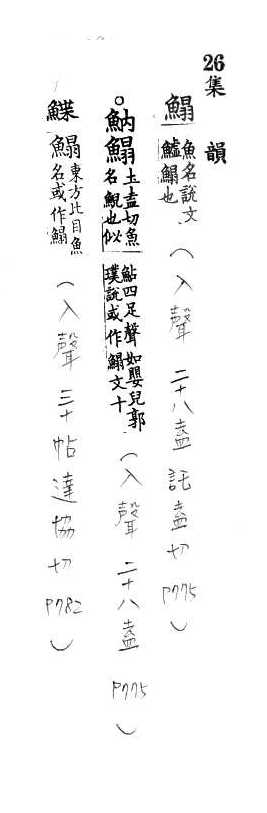 26集韻
鰨魚名說文鱸鰨也（入聲 二十八盍 託盍切 P775）
。魶鰨土盍切魚名鯢也似鮎四足聲如嬰兒郭璞說或作鰨文十（入聲 二十八盍 P775）
鰈鰨東方比目魚名或作鰨（入聲 三十帖 達協切 P782）